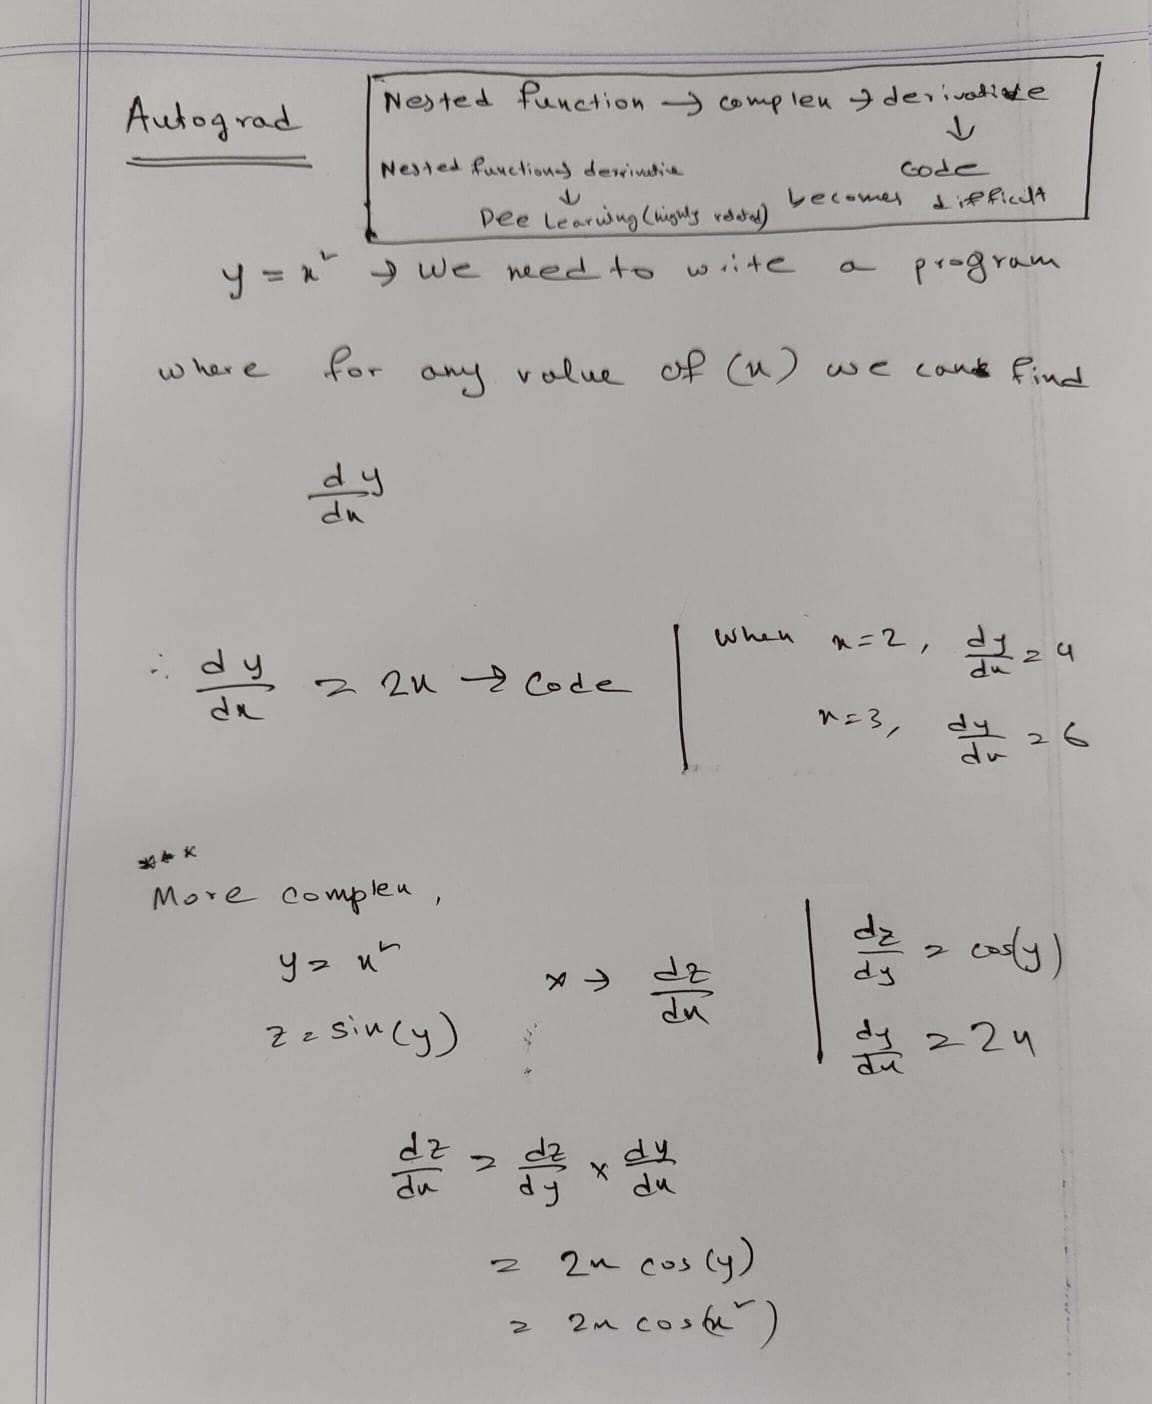 Autograd
Nested function → complex → derivative
↓
code
becomes difficult
Nested functions derrivative
↓
Dee Learning (highly related)
y = x² → We need to write a program
where for any value of (x) we can find
dy/dx
∴ dy/dx = 2x → Code
When x=2, dy/dx = 4
x=3, dy/dx = 6
***
More complex,
y = x²
z = sin(y)
x → dz/dx
dz/dy = cos(y)
dy/dx = 2x
dz/dx = dz/dy × dy/dx
= 2x cos(y)
= 2x cos(x²)